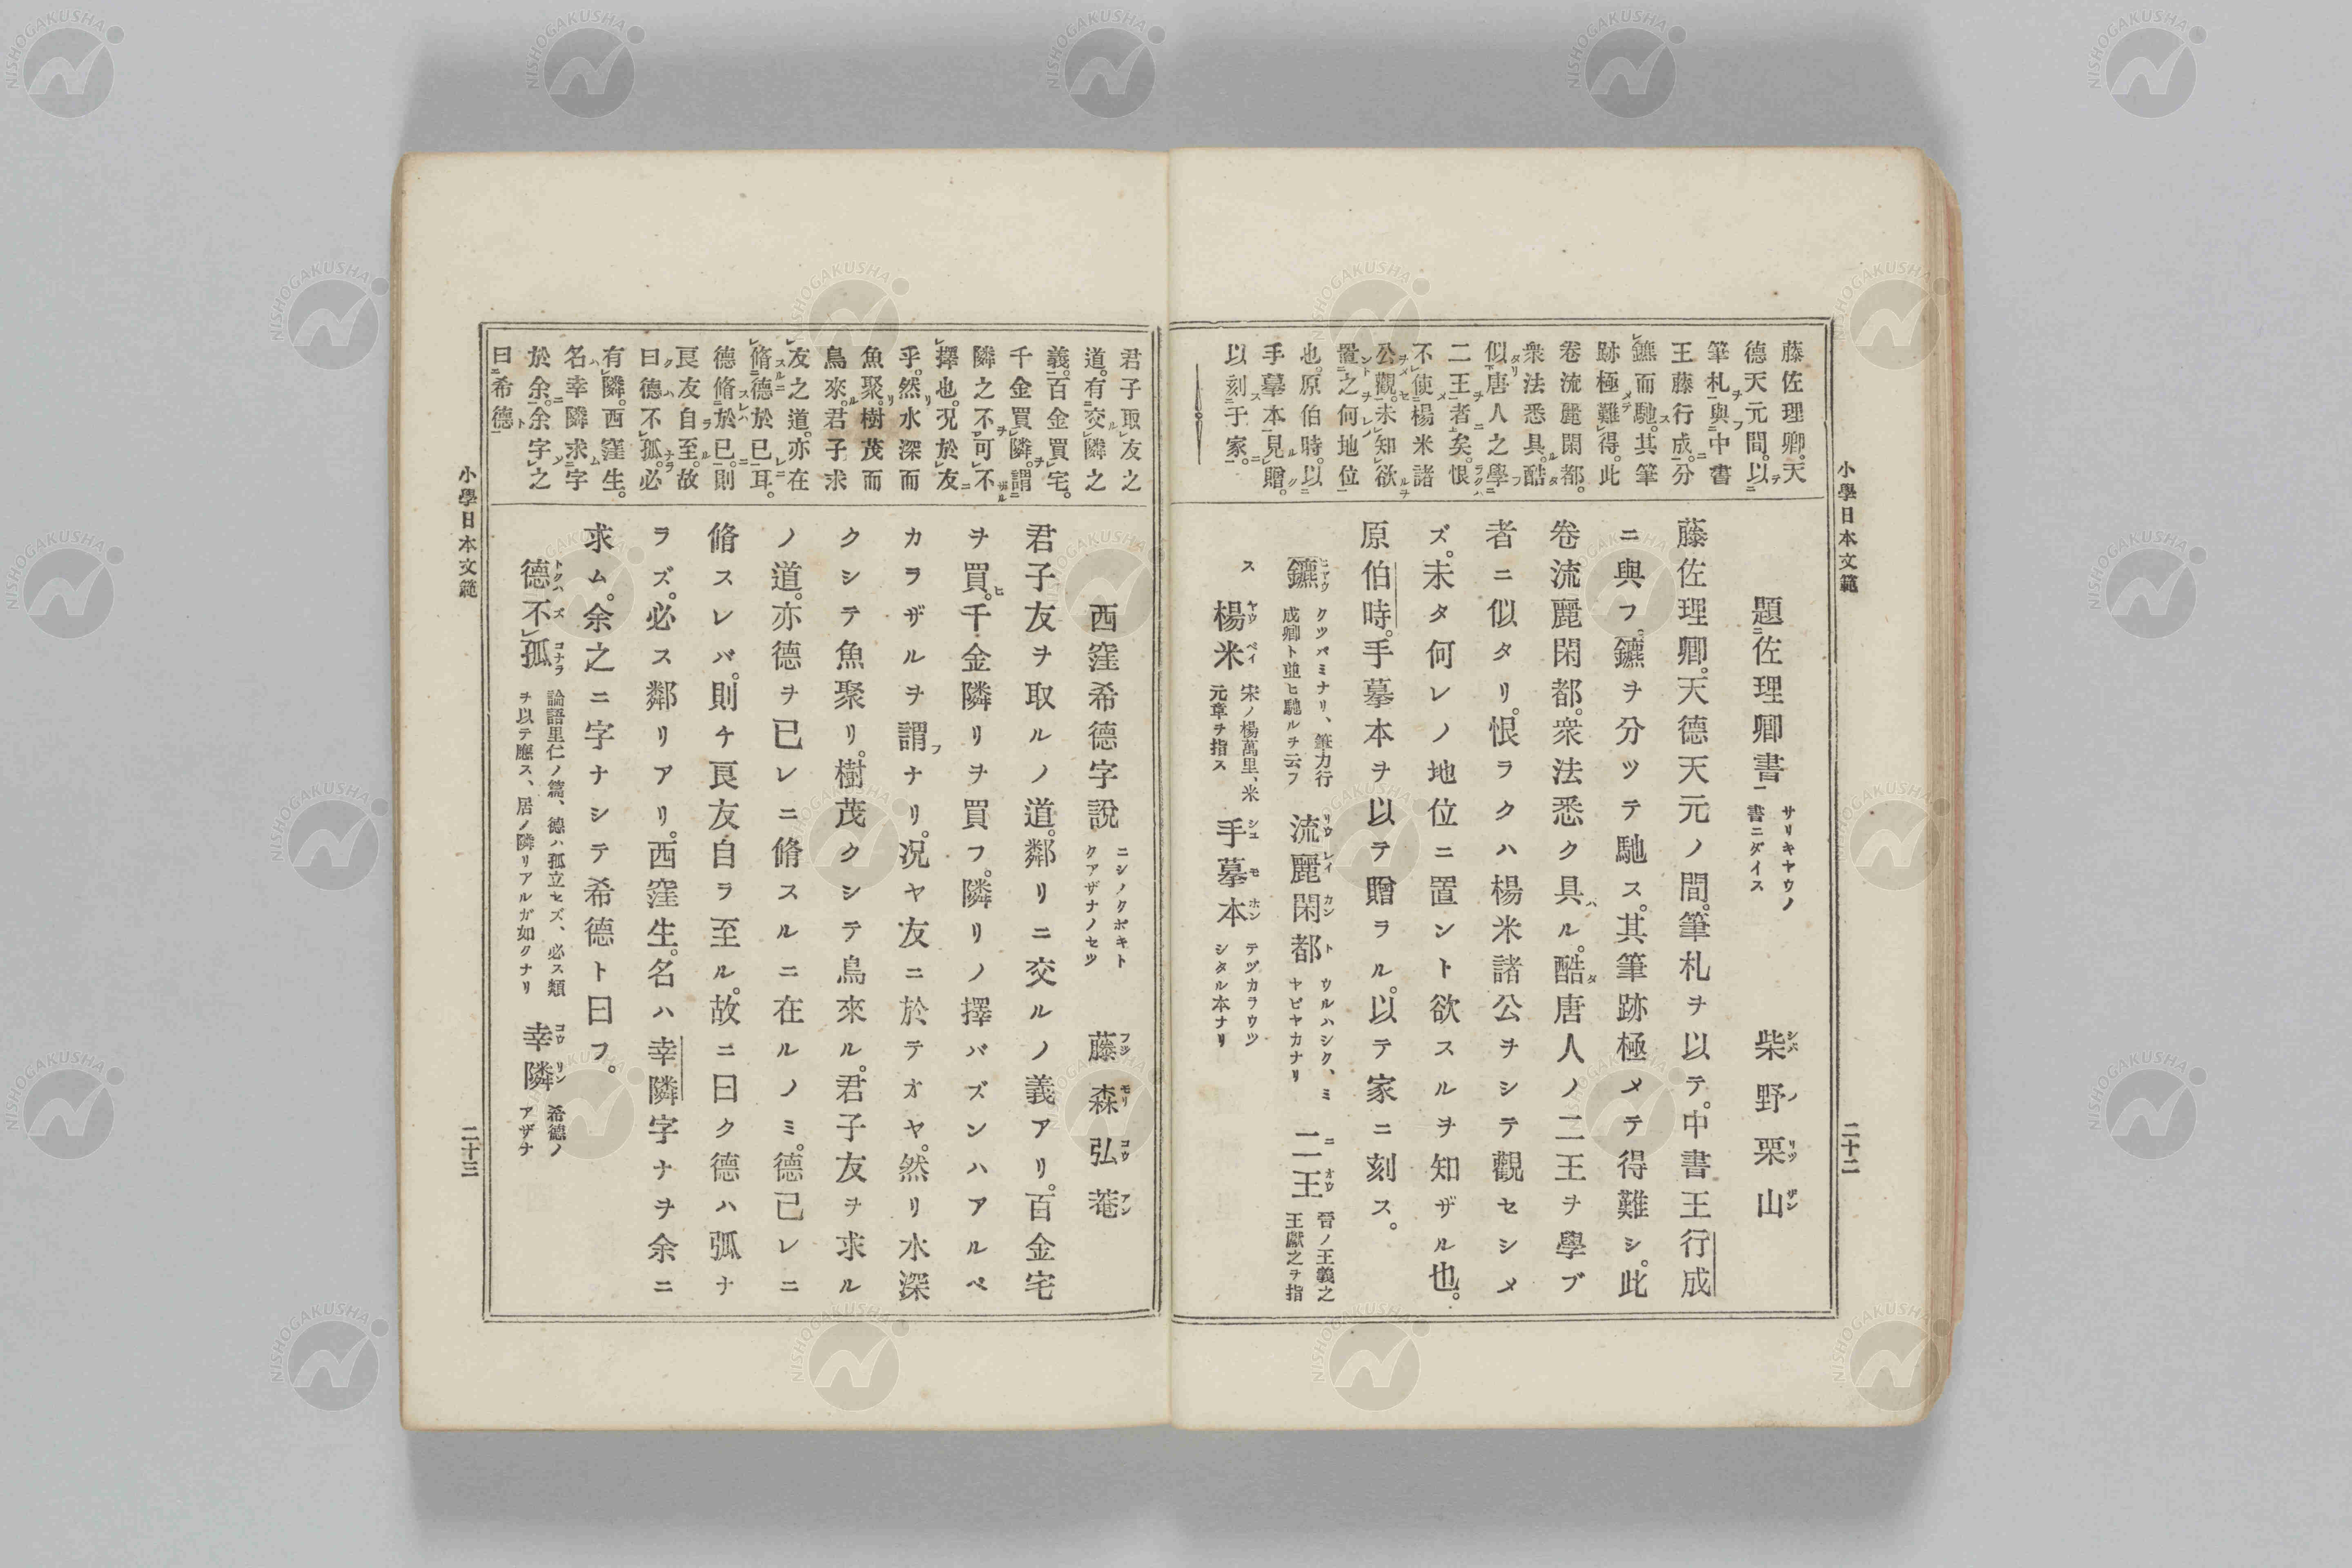 小學日本文範
二十二
藤佐理卿。天
德天元間。以
筆札與中書
王藤行成。分
鑣而馳。其筆
跡極難得。此
卷流麗閑都。
衆法悉具。酷
似唐人之學
二王者矣。恨
不使楊米諸
公觀。未知欲
置之何地位
也。原伯時。以
手摹本見贈。
以刻于家。
題佐理卿書
サリキヤウノ
書ニダイス
柴野栗山
藤佐理卿。天德天元ノ間。筆札ヲ以テ。中書王行成
ニ與フ。鑣ヲ分ツテ馳ス。其筆跡極メテ得難シ。此
卷流麗閑都。衆法悉ク具ル。酷唐人ノ二王ヲ學ブ
者ニ似タリ。恨ラクハ楊米諸公ヲシテ觀セシメ
ズ。未タ何レノ地位ニ置ント欲スルヲ知ザル也。
原伯時。手摹本ヲ以テ贈ラル。以テ家ニ刻ス。
鑣 クツバミナリ、筆力行成卿ト並ヒ馳ルヲ云フ
流麗閑都 ウルハシク、ミヤビヤカナリ
二王 晉ノ王羲之王獻之ヲ指
ス
楊米 宋ノ楊萬里、米元章ヲ指ス
手摹本 テヅカラウツシタル本ナリ
君子取友之
道。有交隣之
義。百金買宅。
千金買隣。謂
隣之不可不
擇也。况於友
乎。然水深而
魚聚。樹茂而
鳥來。君子求
友之道。亦在
脩德於已耳。
德脩於已。則
良友自至。故
曰德不孤。必
有隣。西窪生。
名幸隣求字
於余。余字之
曰希德
西窪希德字說
ニシノクボキト
クアザナノセツ
藤森弘菴
君子友ヲ取ルノ道。鄰リニ交ルノ義アリ。百金宅
ヲ買。千金隣リヲ買フ。隣リノ擇バズンハアルベ
カラザルヲ謂ナリ。况ヤ友ニ於テオヤ。然リ水深
クシテ魚聚リ。樹茂クシテ鳥來ル。君子友ヲ求ル
ノ道。亦德ヲ已レニ脩スルニ在ルノミ。德已レニ
脩スレバ。則チ良友自ラ至ル。故ニ曰ク德ハ弧ナ
ラズ。必ス鄰リアリ。西窪生。名ハ幸隣字ナヲ余ニ
求ム。余之ニ字ナシテ希德ト曰フ。
德不孤 論語里仁ノ篇、德ハ孤立セズ、必ス類ヲ以テ應ス、居ノ隣リアルガ如クナリ
幸隣 希德ノアザナ
小學日本文範
二十三